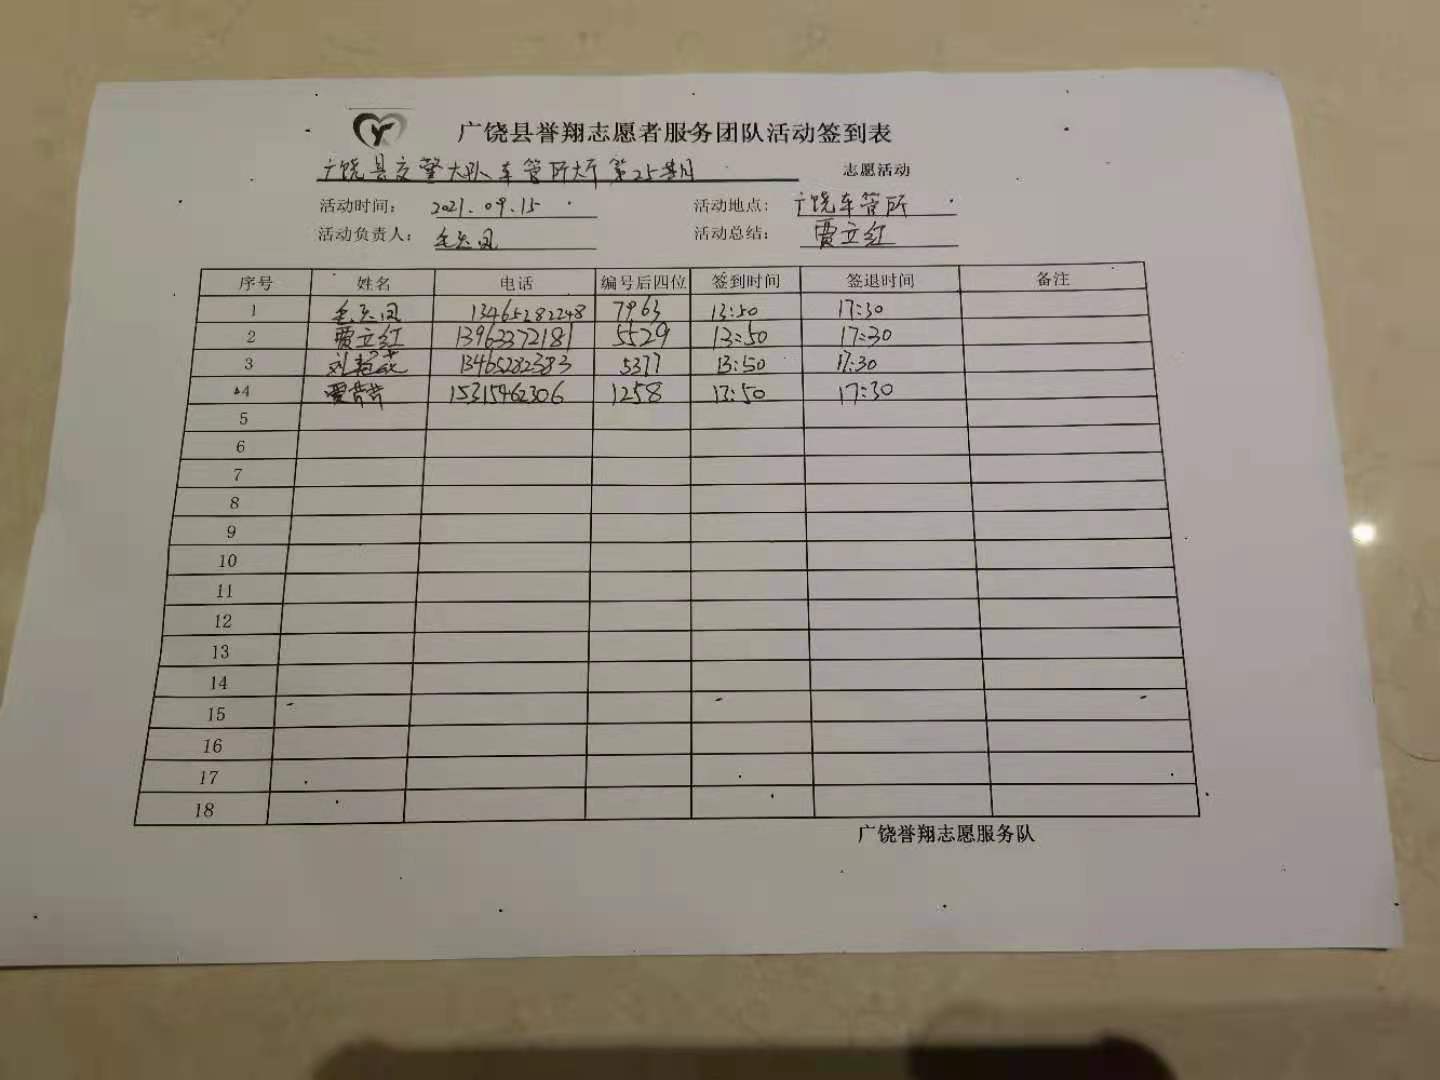 广饶县誉翔志愿者服务团队活动签到表
广饶县交警大队车管所大厅第25期 志愿活动
活动时间: 2021.09.15 活动地点: 广饶车管所
活动负责人: 活动总结: 贾立红
序号 姓名 电话 编号后四位 签到时间 签退时间 备注
1 13465282248 7963 13:50 17:30
2 贾立红 13963372181 5529 13:50 17:30
3 13465282383 5377 13:50 17:30
4 15315462306 1258 13:50 17:30
5
6
7
8
9
10
11
12
13
14
15
16
17
18
广饶誉翔志愿服务队